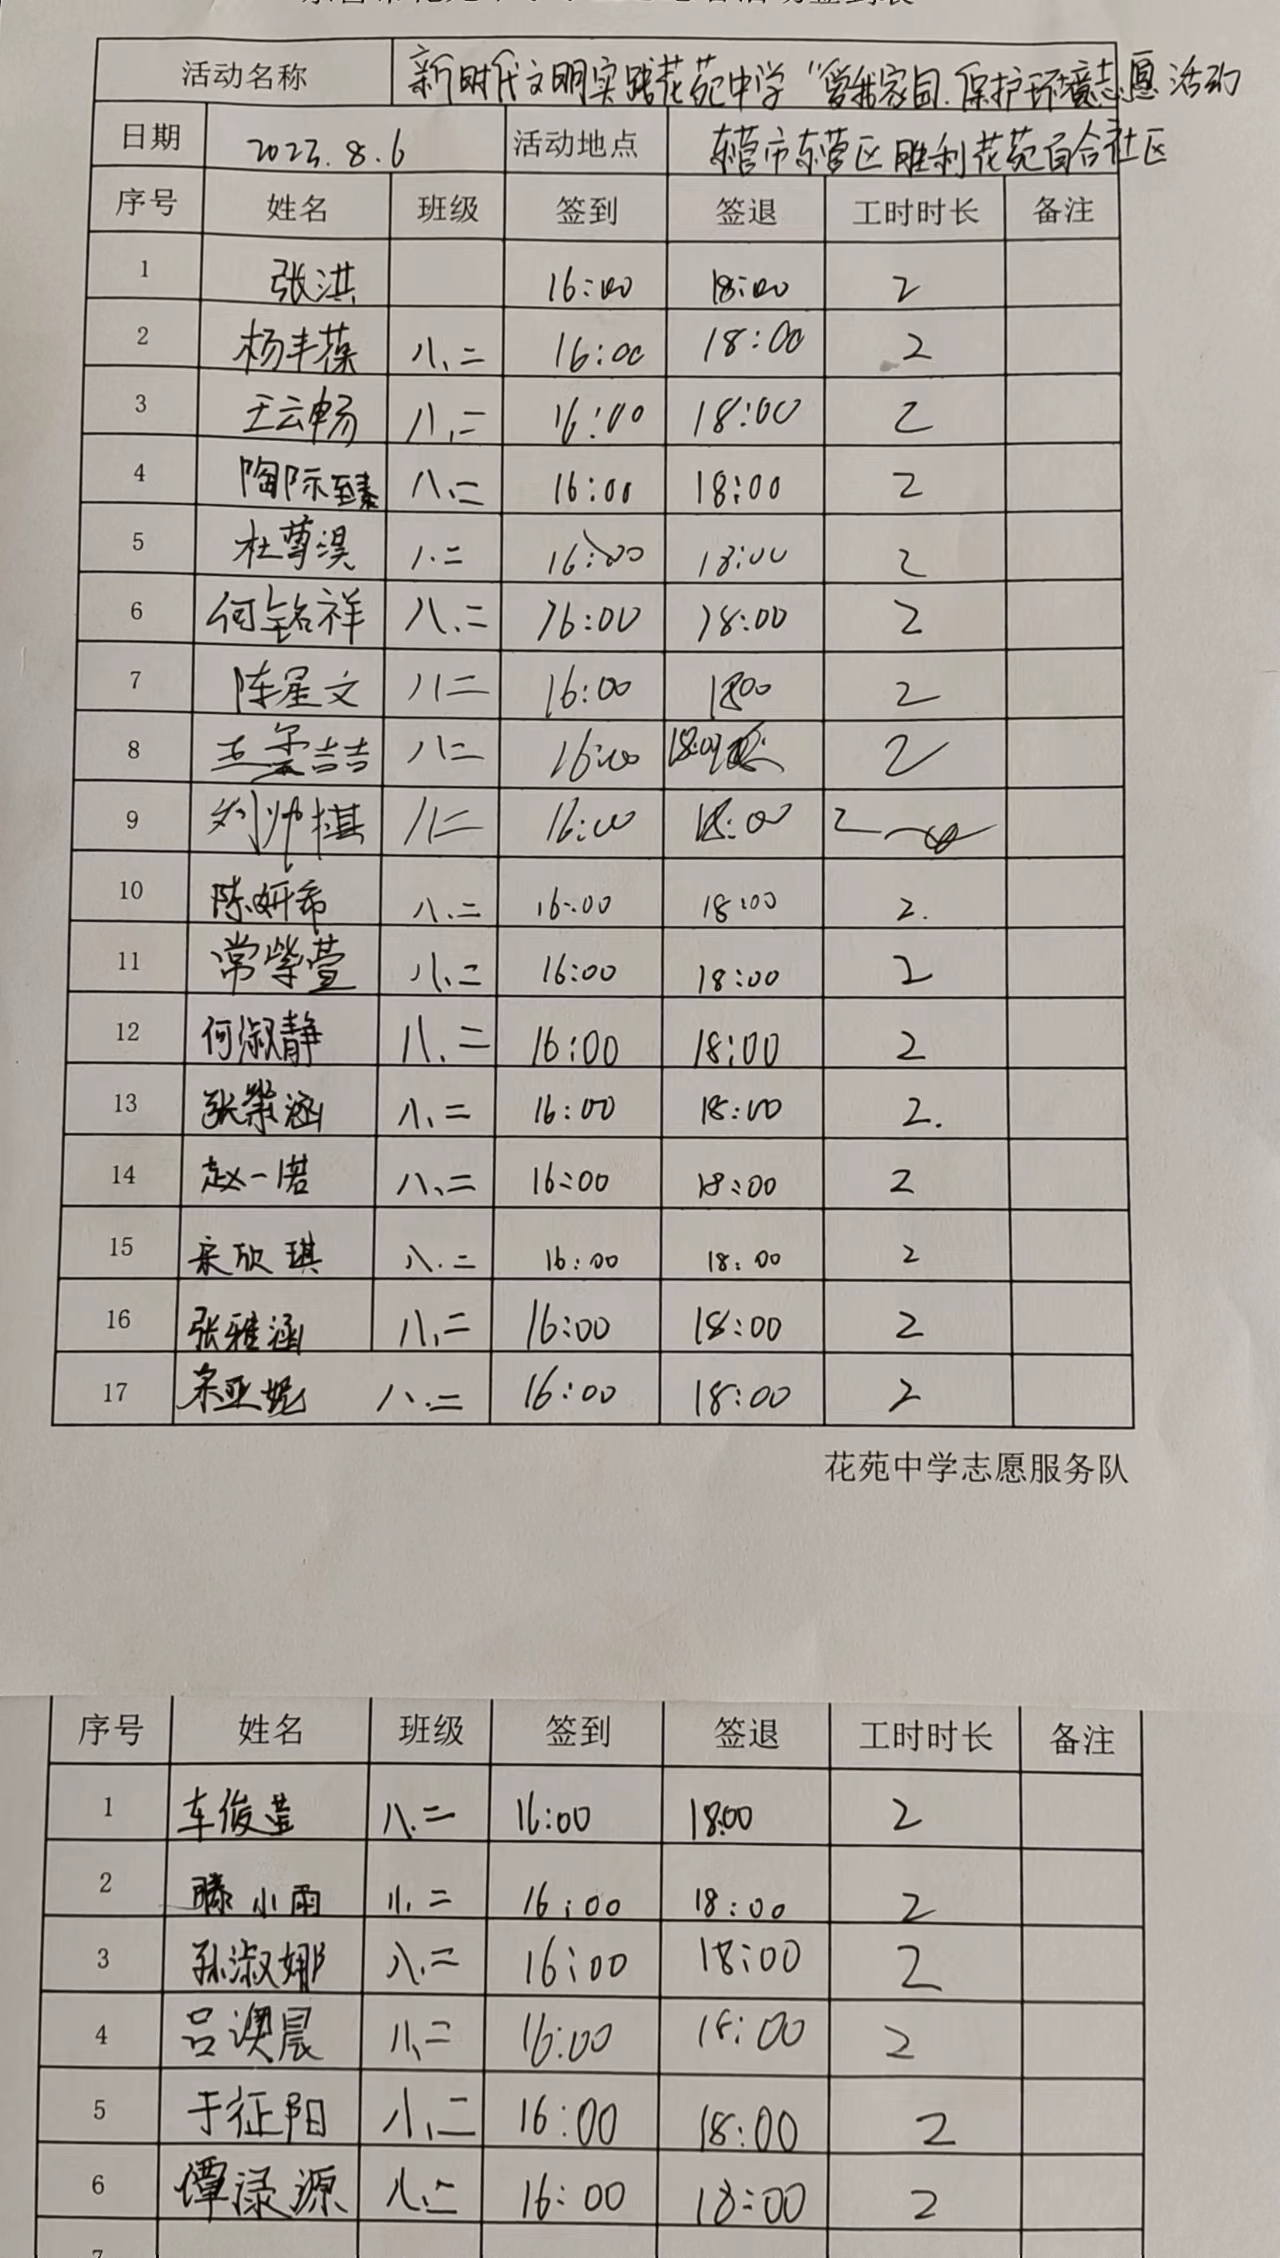 活动名称 新时代文明实践花苑中学“爱我家园.保护环境志愿活动
日期 2023.8.6 活动地点 东营市东营区胜利花苑百合社区
序号 姓名 班级 签到 签退 工时时长 备注
1 张洪 16:00 18:00 2
2 杨丰葆 八、二 16:00 18:00 2
3 王云畅 八、二 16:00 18:00 2
4 陶际至臻 八、二 16:00 18:00 2
5 杜萼淏 八.二 16:00 18:00 2
6 何铭祥 八.二 16:00 18:00 2
7 陈星文 八二 16:00 1800 2
8 八二 16:00 18:00 2
9 刘帅棋 八二 16:00 18:00 2
10 陈妍希 八.二 16:00 18:00 2.
11 常紫萱 八、二 16:00 18:00 2
12 何淑静 八、二 16:00 18:00 2
13 张紫涵 八、二 16:00 18:00 2.
14 赵一诺 八、二 16:00 18:00 2
15 宋欣琪 八.二 16:00 18:00 2
16 张雅涵 八、二 16:00 18:00 2
17 宋亚妮 八.二 16:00 18:00 2
花苑中学志愿服务队
序号 姓名 班级 签到 签退 工时时长 备注
1 车俊莹 八.二 16:00 18:00 2
2 滕小雨 八、二 16:00 18:00 2
3 孙淑娜 八.二 16:00 18:00 2
4 吕澳晨 八、二 16:00 18:00 2
5 于征阳 八、二 16:00 18:00 2
6 谭渌源 八、二 16:00 18:00 2